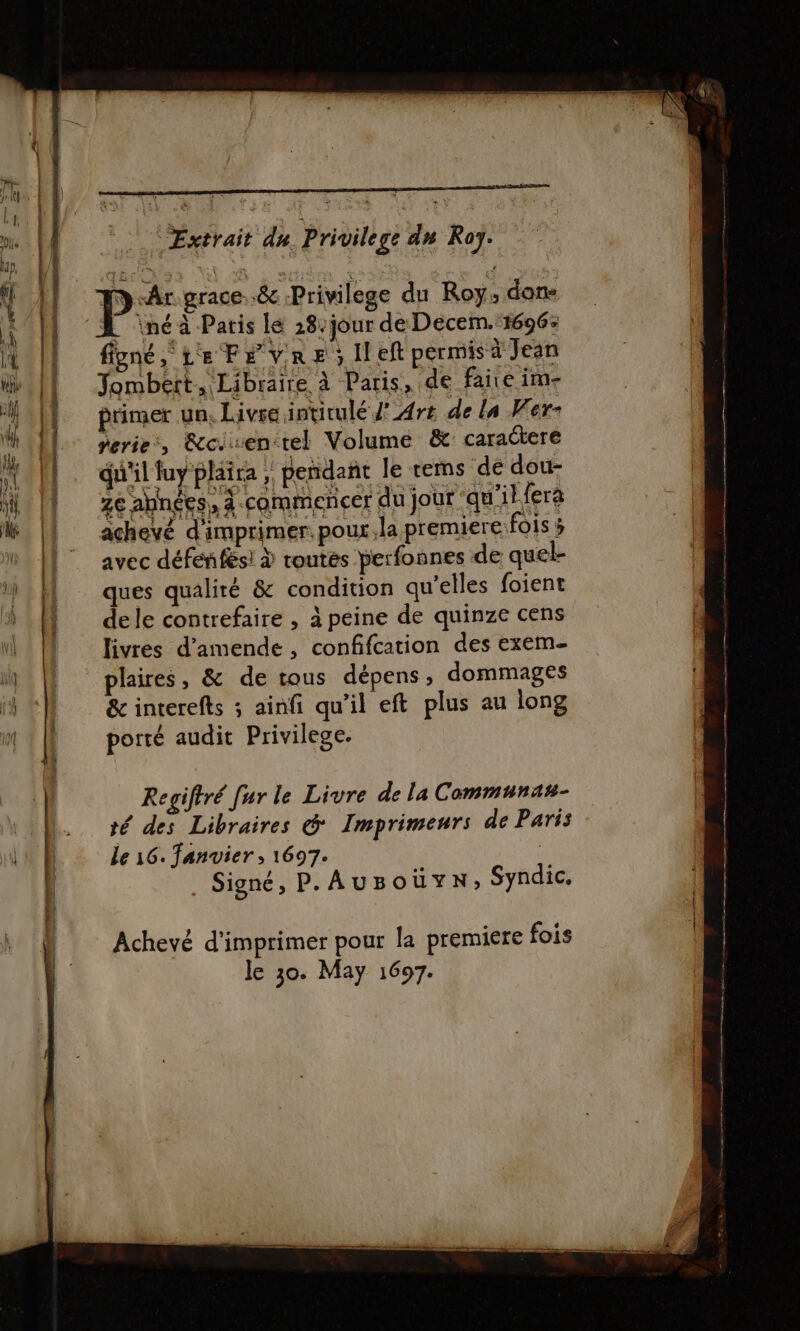 Extrait du Privilege du Roy.
PAr grace & Privilege du Roy, don-
né à Paris le 28. jour de Decem. 1696.
ſigné, LE FEVRE ; Il eſt permis à Jean
Jombert, Libraire à Paris, de faire im-
primer un Livre intitulé l'Art de la Ver-
rerie, &c. en tel Volume & caractere
qu'il luy plaira, pendant le tems de dou-
ze années, à commencer du jour qu'il ſera
achevé d'imprimer pour la premiere fois ;
avec défenſes à toutes perſonnes de quel-
ques qualité & condition qu'elles ſoient
de le contrefaire, à peine de quinze cens
livres d'amende, confiſcation des exem-
plaires, & de tous dépens, dommages
& intereſts ; ainſi qu'il eſt plus au long
porté audit Privilege.
Regiſtré ſur le Livre de la Communau-
té des Libraires & Imprimeurs de Paris
le 16. Janvier, 1697.
Signé, P. AUBOÜYN, Syndic.
Achevé d'imprimer pour la premiere fois
le 30. May 1697.